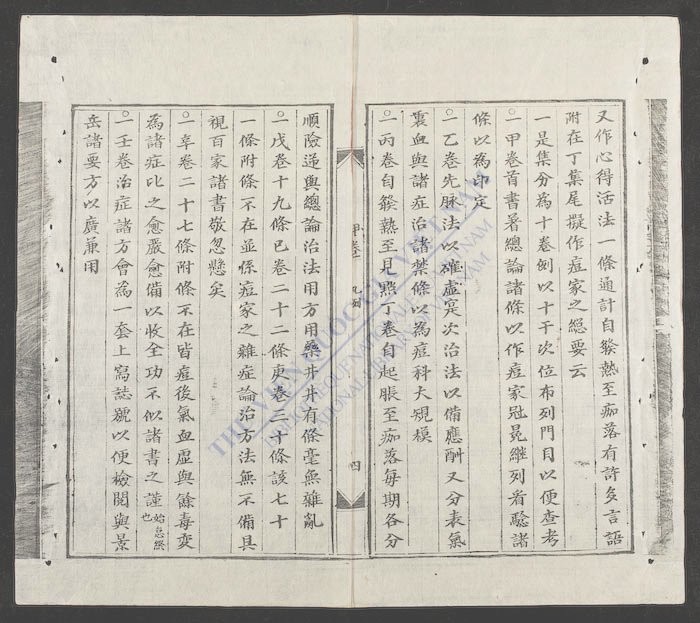 又作心得活法一條通計自發熱至痂落有許多言語
附在丁集尾擬作痘家之總要云
一是集分為十卷例以十干次位布列門目以便查考
○一甲卷首書署總論諸條以作痘家冠冕継列看驗諸
條以為印定
○一乙卷先脉法以確虛寔次治法以備應酬又分表氣
裏血與諸症治諸禁條以為痘科大規模
○一丙卷自發熱至見照丁卷自起脹至痂落每期各分
甲卷 凡例 四
順險逆與總論治法用方用藥井井有條毫無雜亂
○一戊卷十九條已卷二十二條庚卷三十條該七十
一條附條不在並係痘家之雜症論治方法無不備具
視百家諸書敬忽懸矣
○一辛卷二十七條附條不在皆痘後氣血虛與餘毒变
為諸症比之愈嚴愈備以收全功不似諸書之謹始怠終也
○一壬卷治症諸方會為一套上寫誌號以便檢閱與景
岳諸要方以廣兼用
THƯ VIỆN QUỐC GIA VIỆT NAM
BIBLIOTHEQUE NATIONALE DU VIETNAM
NATIONAL LIBRARY OF VIETNAM